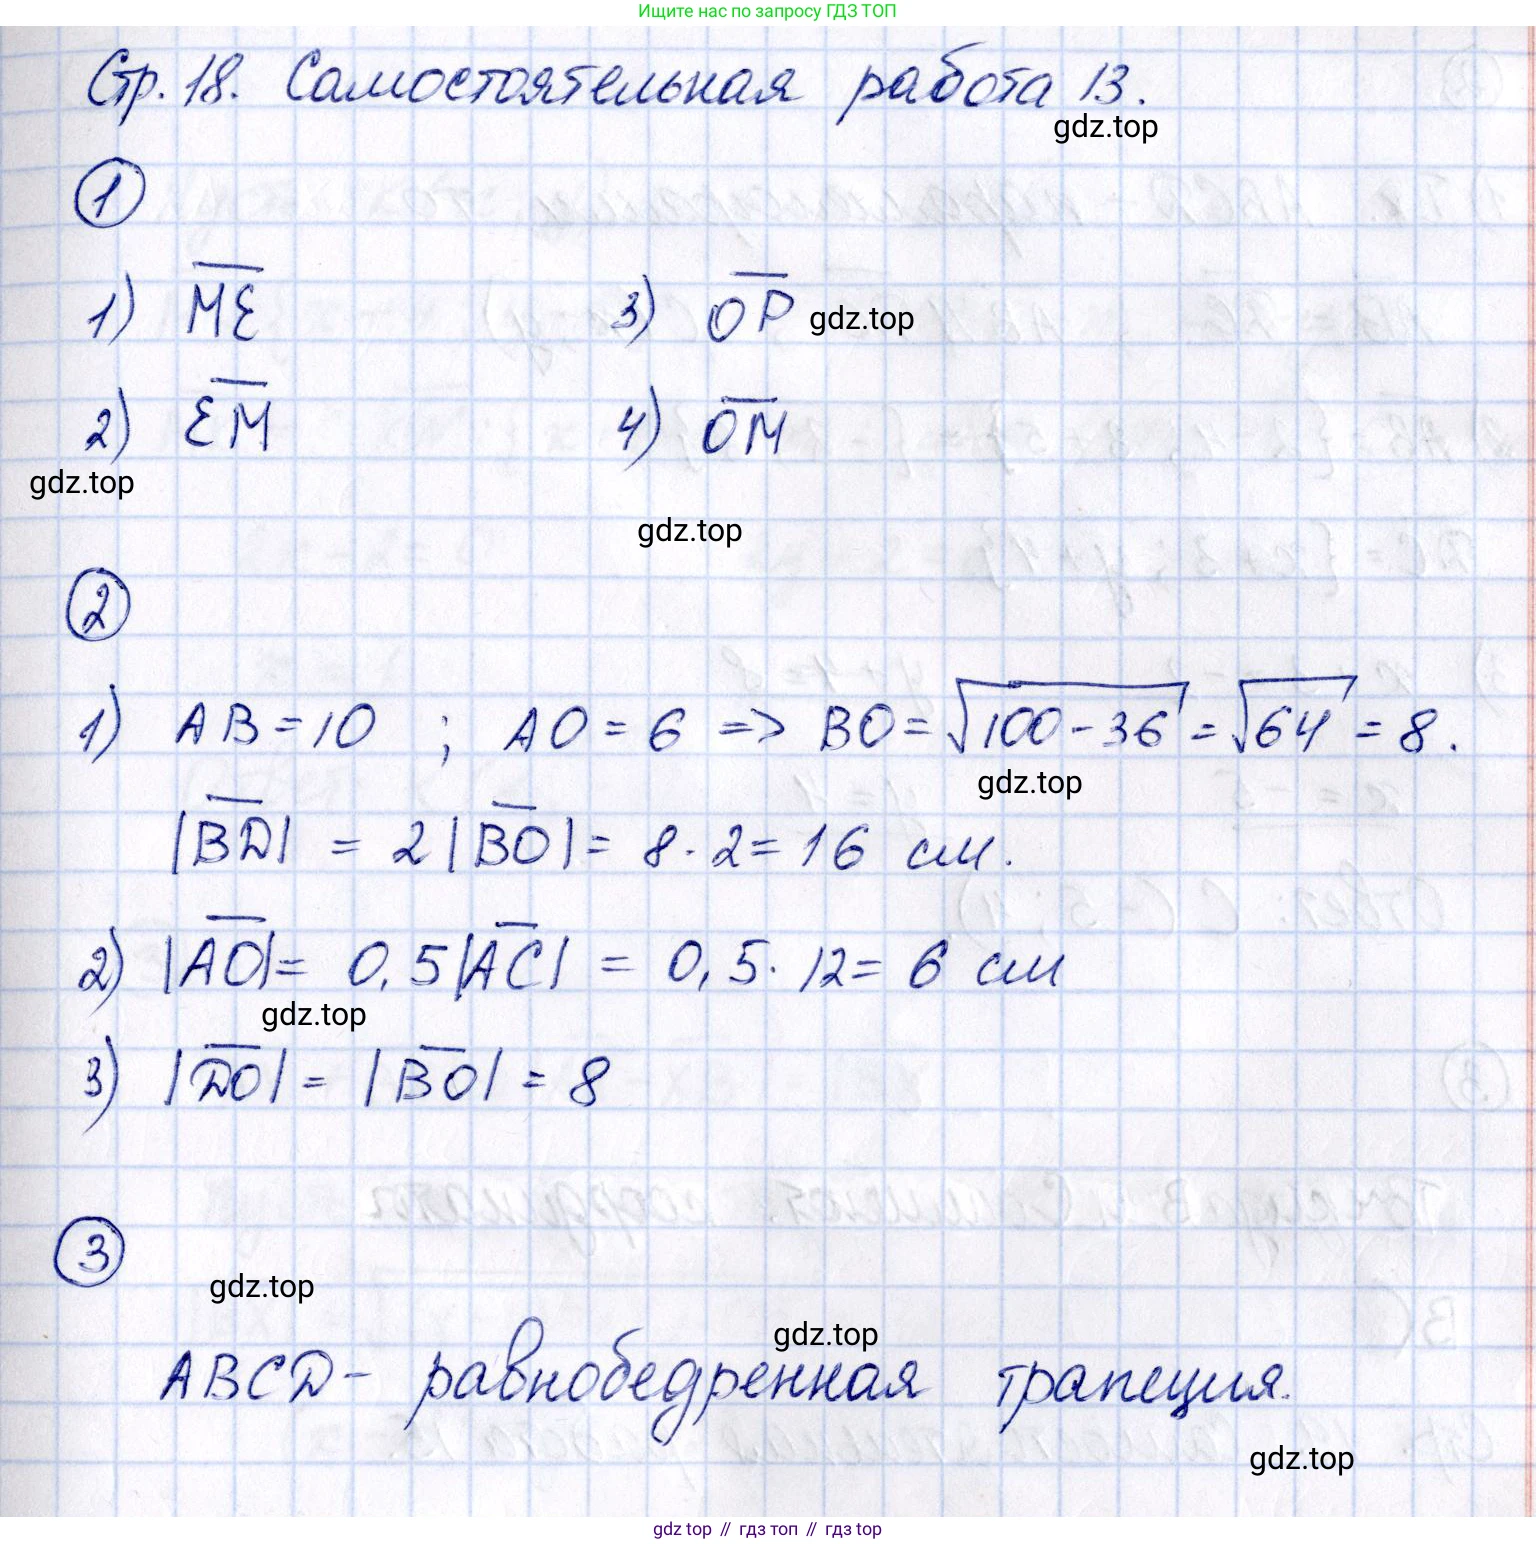 Ищите нас по запросу ГДЗ ТОП
Стр. 18. Самостоятельная работа 13.
gdz.top
1
1) ME
3) OP gdz.top
2) EM
4) OM
gdz.top
gdz.top
2
1) AB = 10 ; AO = 6 => BO = √100 - 36 = √64 = 8.
gdz.top
|BD| = 2|BO| = 8 · 2 = 16 см.
2) |AO| = 0,5|AC| = 0,5 · 12 = 6 см
gdz.top
3) |DO| = |BO| = 8
3
gdz.top
gdz.top
ABCD - равнобедренная трапеция.
gdz.top
gdz top // гдз топ // гдз top